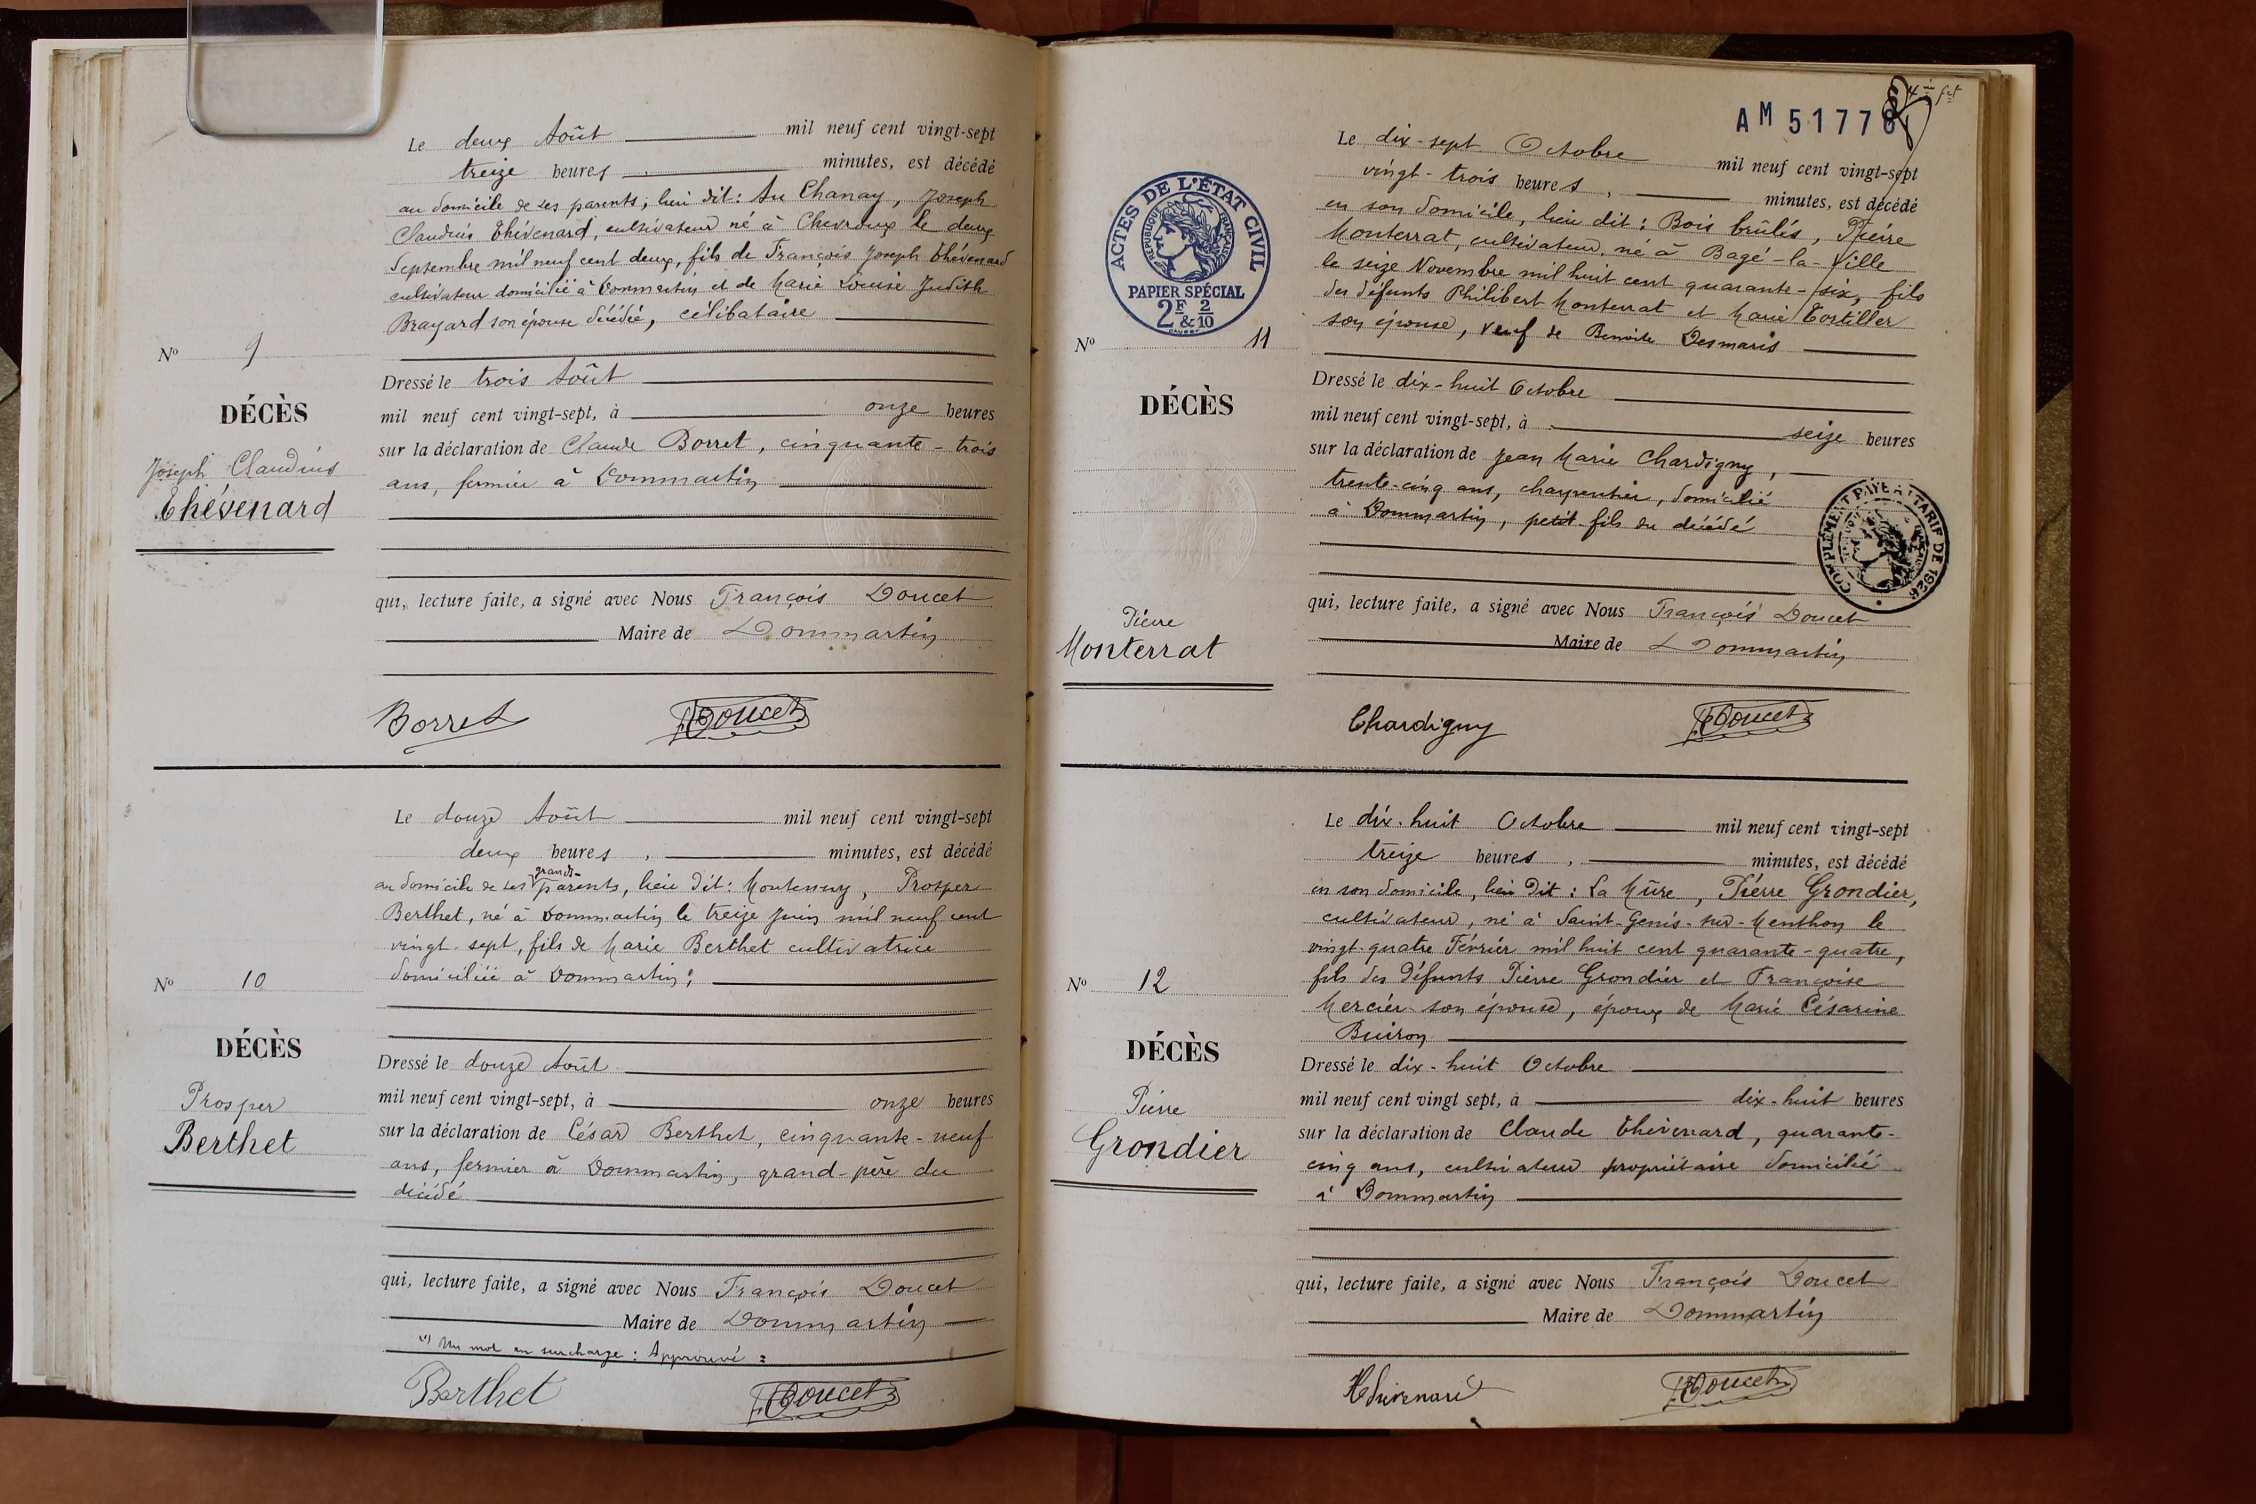 Le deux Août mil neuf cent vingt-sept
treize heures, minutes, est décédé
au domicile de ses parents, lieu dit : Au Chanay, Joseph
Claudius Thévenard, cultivateur né à Chevroux le deux
Septembre mil neuf cent deux, fils de François Joseph Thévenard
cultivateur domicilié à Dommartin et de Marie Louise Judith
Brayard son épouse décédée, célibataire
N° 9
Dressé le trois Août
DÉCÈS
mil neuf cent vingt-sept, à onze heures
sur la déclaration de Claude Borret, cinquante-trois
Joseph Claudius
ans, fermier à Dommartin
Thévenard
qui, lecture faite, a signé avec Nous François Doucet
Maire de Dommartin
Borret Doucet
Le douze Août mil neuf cent vingt-sept
deux heures, minutes, est décédé
grands-
au domicile de ses parents, lieu dit : Montenuy, Prosper
Berthet, né à Dommartin le treize Juin mil neuf cent
vingt-sept, fils de Marie Berthet cultivatrice
domiciliée à Dommartin;
N° 10
DÉCÈS
Dressé le douze Août
mil neuf cent vingt-sept, à onze heures
Prosper
Berthet
sur la déclaration de César Berthet, cinquante-neuf
ans, fermier à Dommartin, grand-père du
décédé
qui, lecture faite, a signé avec Nous François Doucet
Maire de Dommartin
(1) Un mot en surcharge : Approuvé :
Berthet Doucet
4me fet
AM 51778
Le dix-sept Octobre mil neuf cent vingt-sept
vingt-trois heures, minutes, est décédé
en son domicile, lieu dit : Bois brûlés, Pierre
Monterrat, cultivateur, né à Bagé-la-Ville
le seize Novembre mil huit cent quarante-six, fils
des défunts Philibert Monterrat et Marie Tortiller
son épouse, veuf de Benoite Desmaris
ACTES DE L'ÉTAT CIVIL
RÉPUBLIQUE FRANÇAISE
PAPIER SPÉCIAL
2F & 2/10
N° 11
Dressé le dix-huit Octobre
DÉCÈS
mil neuf cent vingt-sept, à seize heures
sur la déclaration de Jean Marie Chardigny,
trente-cinq ans, charpentier, domicilié
à Dommartin, petit-fils du décédé
COMPLÉMENT PAYÉ AU TARIF DE 1926
qui, lecture faite, a signé avec Nous François Doucet
Pierre
Monterrat
Maire de Dommartin
Chardigny Doucet
Le dix-huit Octobre mil neuf cent vingt-sept
treize heures, minutes, est décédé
en son domicile, lieu dit : La Mûre, Pierre Grondier,
cultivateur, né à Saint-Genis-sur-Menthon le
vingt-quatre Février mil huit cent quarante-quatre,
fils des défunts Pierre Grondier et Françoise
Mercier son épouse, époux de Marie Césarine
Buiron
N° 12
DÉCÈS
Dressé le dix-huit Octobre
mil neuf cent vingt sept, à dix-huit heures
Pierre
Grondier
sur la déclaration de Claude Thévenard, quarante-
cinq ans, cultivateur propriétaire domicilié
à Dommartin
qui, lecture faite, a signé avec Nous François Doucet
Maire de Dommartin
Thévenard Doucet